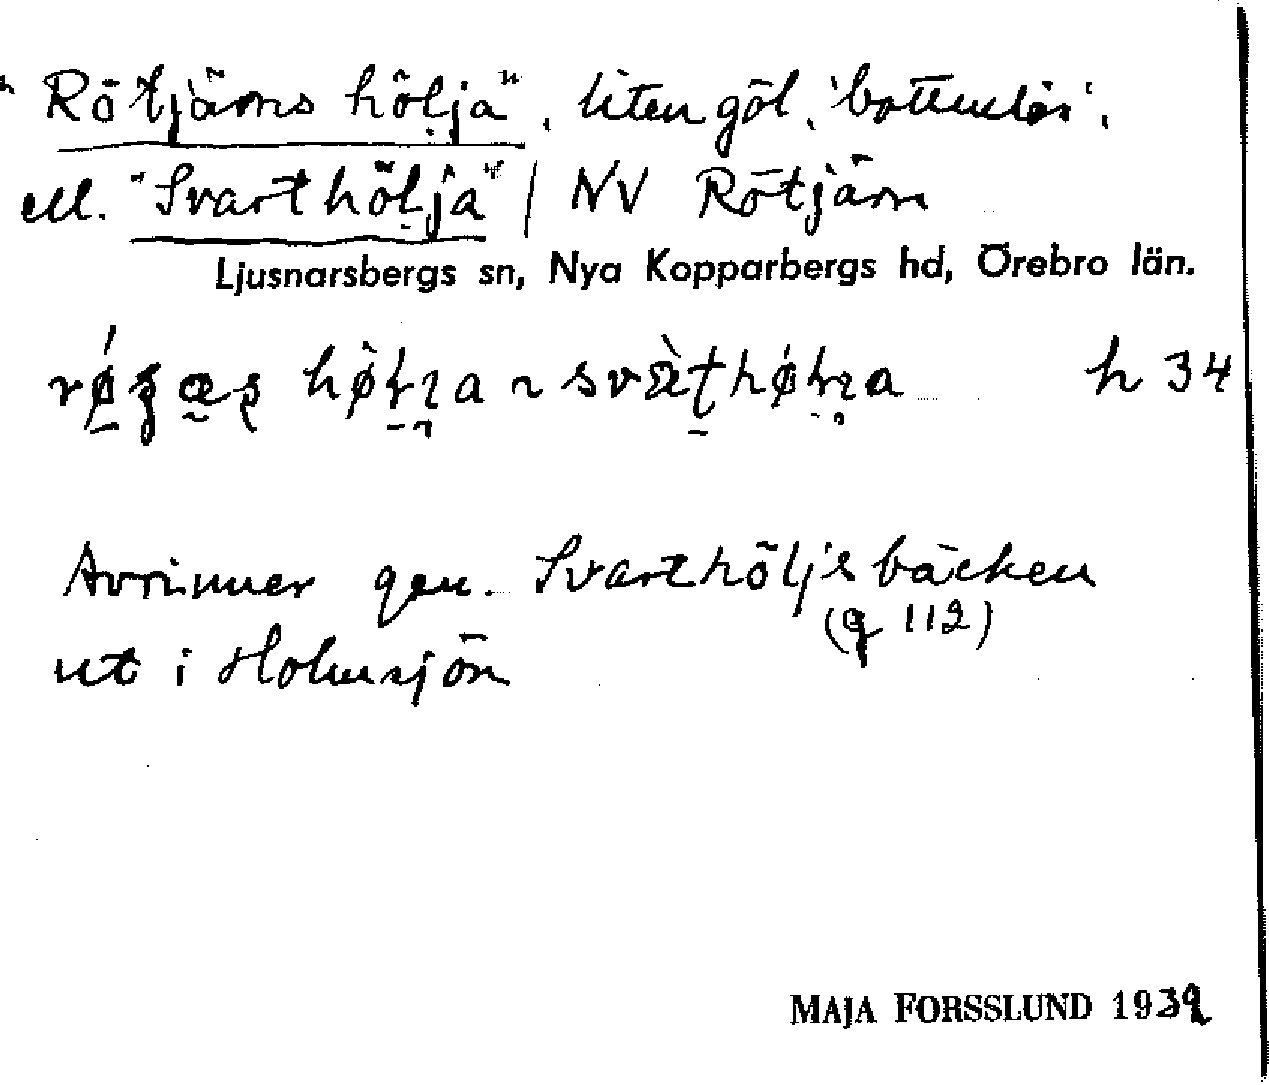 "Rötjärns hölja", liten göl, 'bottenlös',
ell. "Svarthölja" / NV Rötjärn
Ljusnarsbergs sn, Nya Kopparbergs hd, Örebro län.
h 34
Avrinner gen. Svarthöljebäcken
(g 112)
ut i Holmsjön
MAJA FORSSLUND 1939